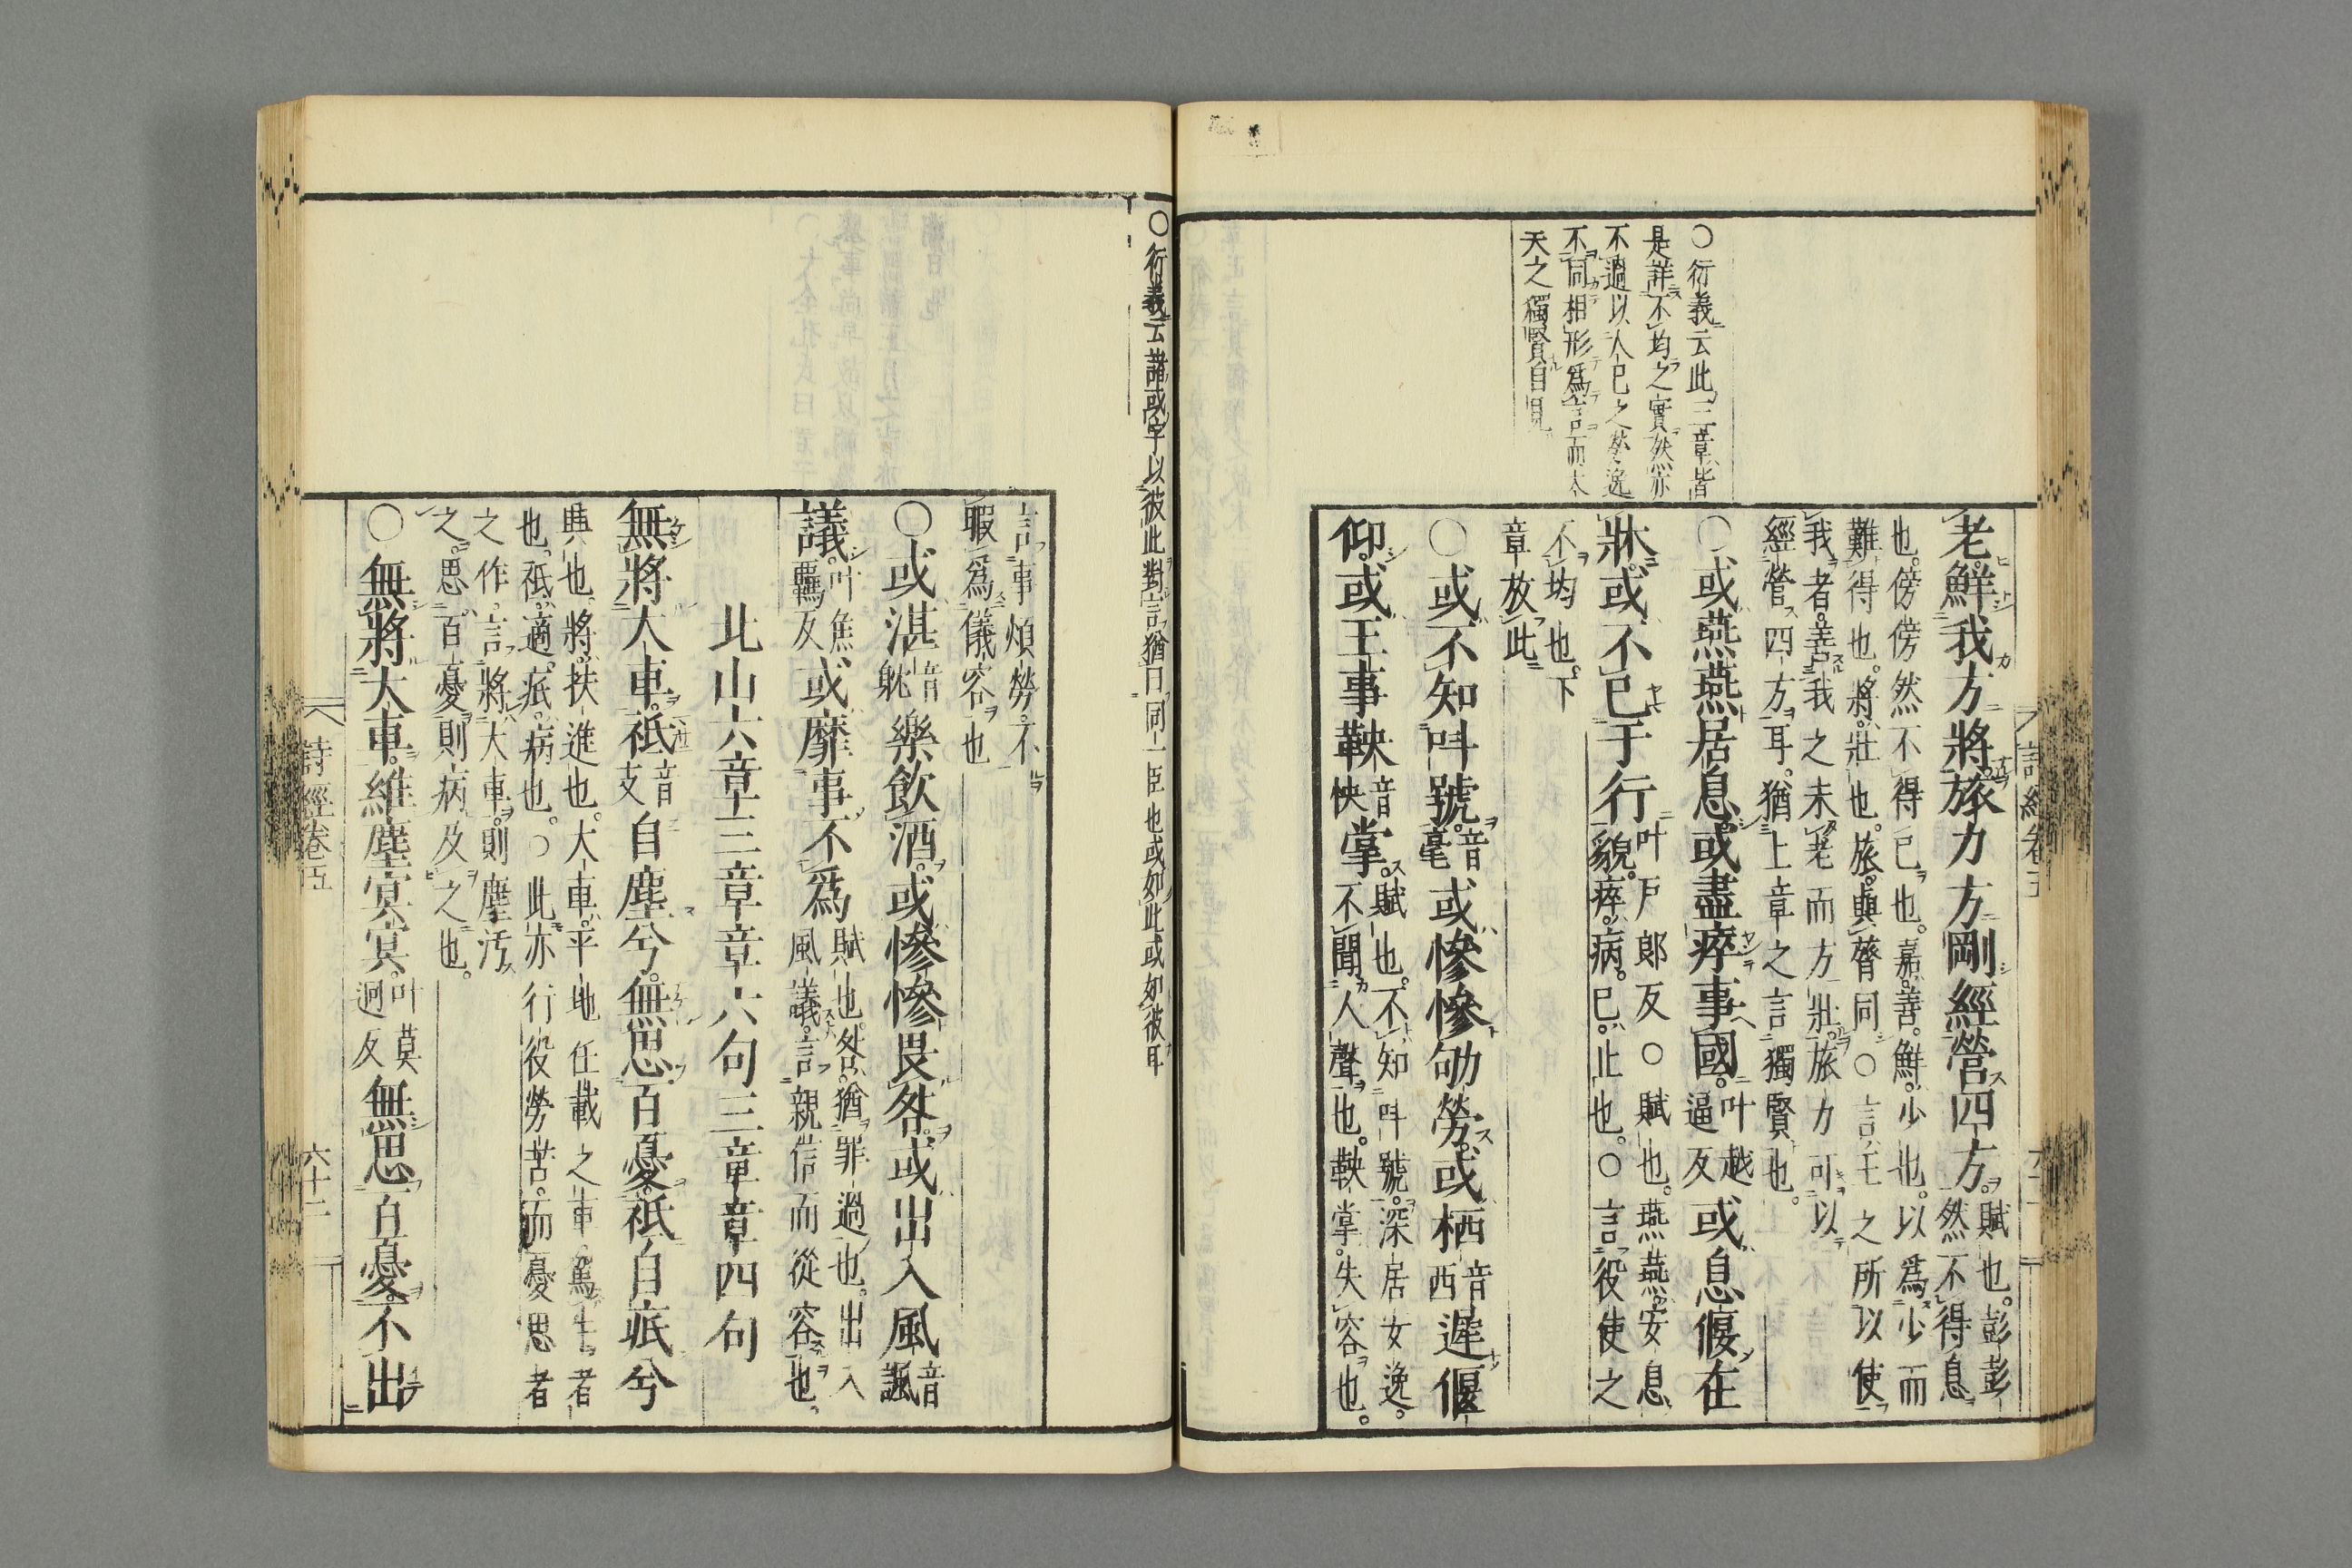 ○衍義云此三章皆
是詳不均之實然亦
不過以人已之勞逸
不同相形爲言而大
天之獨賢自見
詩經卷五
老。鮮我方將。旅力方剛。經營四方。賦也。彭彭
然不得息
也。傍傍然不得已也。嘉。善。鮮。少也。以爲少而
難得也。將。壯也。旅。與膂同○言王之所以使
我者。善我之未老而方壯。旅力可以
經營四方耳。猶上章之言獨賢也。
○或燕燕居息。或盡瘁事國。叶越
逼反或息偃在
牀。或不已于行叶戶郎反○賦也。燕燕。安息
貌。瘁。病。已。止也。○言役使之
不均也。下
章放此
○或不知叫號。音
毫或慘慘劬勞。或栖音
西遲偃
仰。或王事鞅音
怏掌。賦也。不知叫號。深居安逸。
不聞人聲也。鞅掌。失容也。
○衍義云諸或字以彼此對言猶曰同一臣也或如此或如彼耳
言事煩勞。不
暇爲儀容也
○或湛音
躭樂飲酒。或慘慘畏咎。或出入風音
諷
議。叶焦
羈反或靡事不爲賦也。咎。猶罪過也。出入
風議。言親信而從容也。
北山六章三章章六句三章章四句
無將大車。祇音
支自塵兮。無思百憂。祇自疧兮
興也。將。扶進也。大車。平地任載之車。駕牛者
也。祇。適。疧。病也。○此亦行役勞苦。而憂思者
之作。言將大車。則塵汚
之。思百憂。則病及之也。
○無將大車。維塵冥冥。叶莫
迥反無思百憂。不出
詩經卷五
六十二